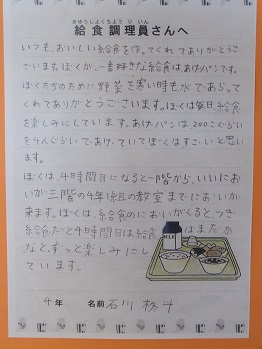 きゅうしょくちょうりいん
給食調理員さんへ
いつも、おいしい給食を作ってくれてありがとうご
ざいます。ぼくが、一番好きな給食はあげパンです。
ぼくたちのために野菜を寒い時も水であらって
くれてありがとうございます。ぼくは毎日給食
を楽しみにしています。あげパンは200こぐらい
を4人ぐらいであげていてぼくはすごいと思い
ます。
ぼくは、4時間目になると一階から、いいにお
いが三階の4年 組の教室までにおいが
来ます。ぼくは、給食のにおいがくると、つぎ
給食だと4時間目は給食はまだか
なと、ずっと楽しみにし
ています。
4年 名前 石川 柊斗